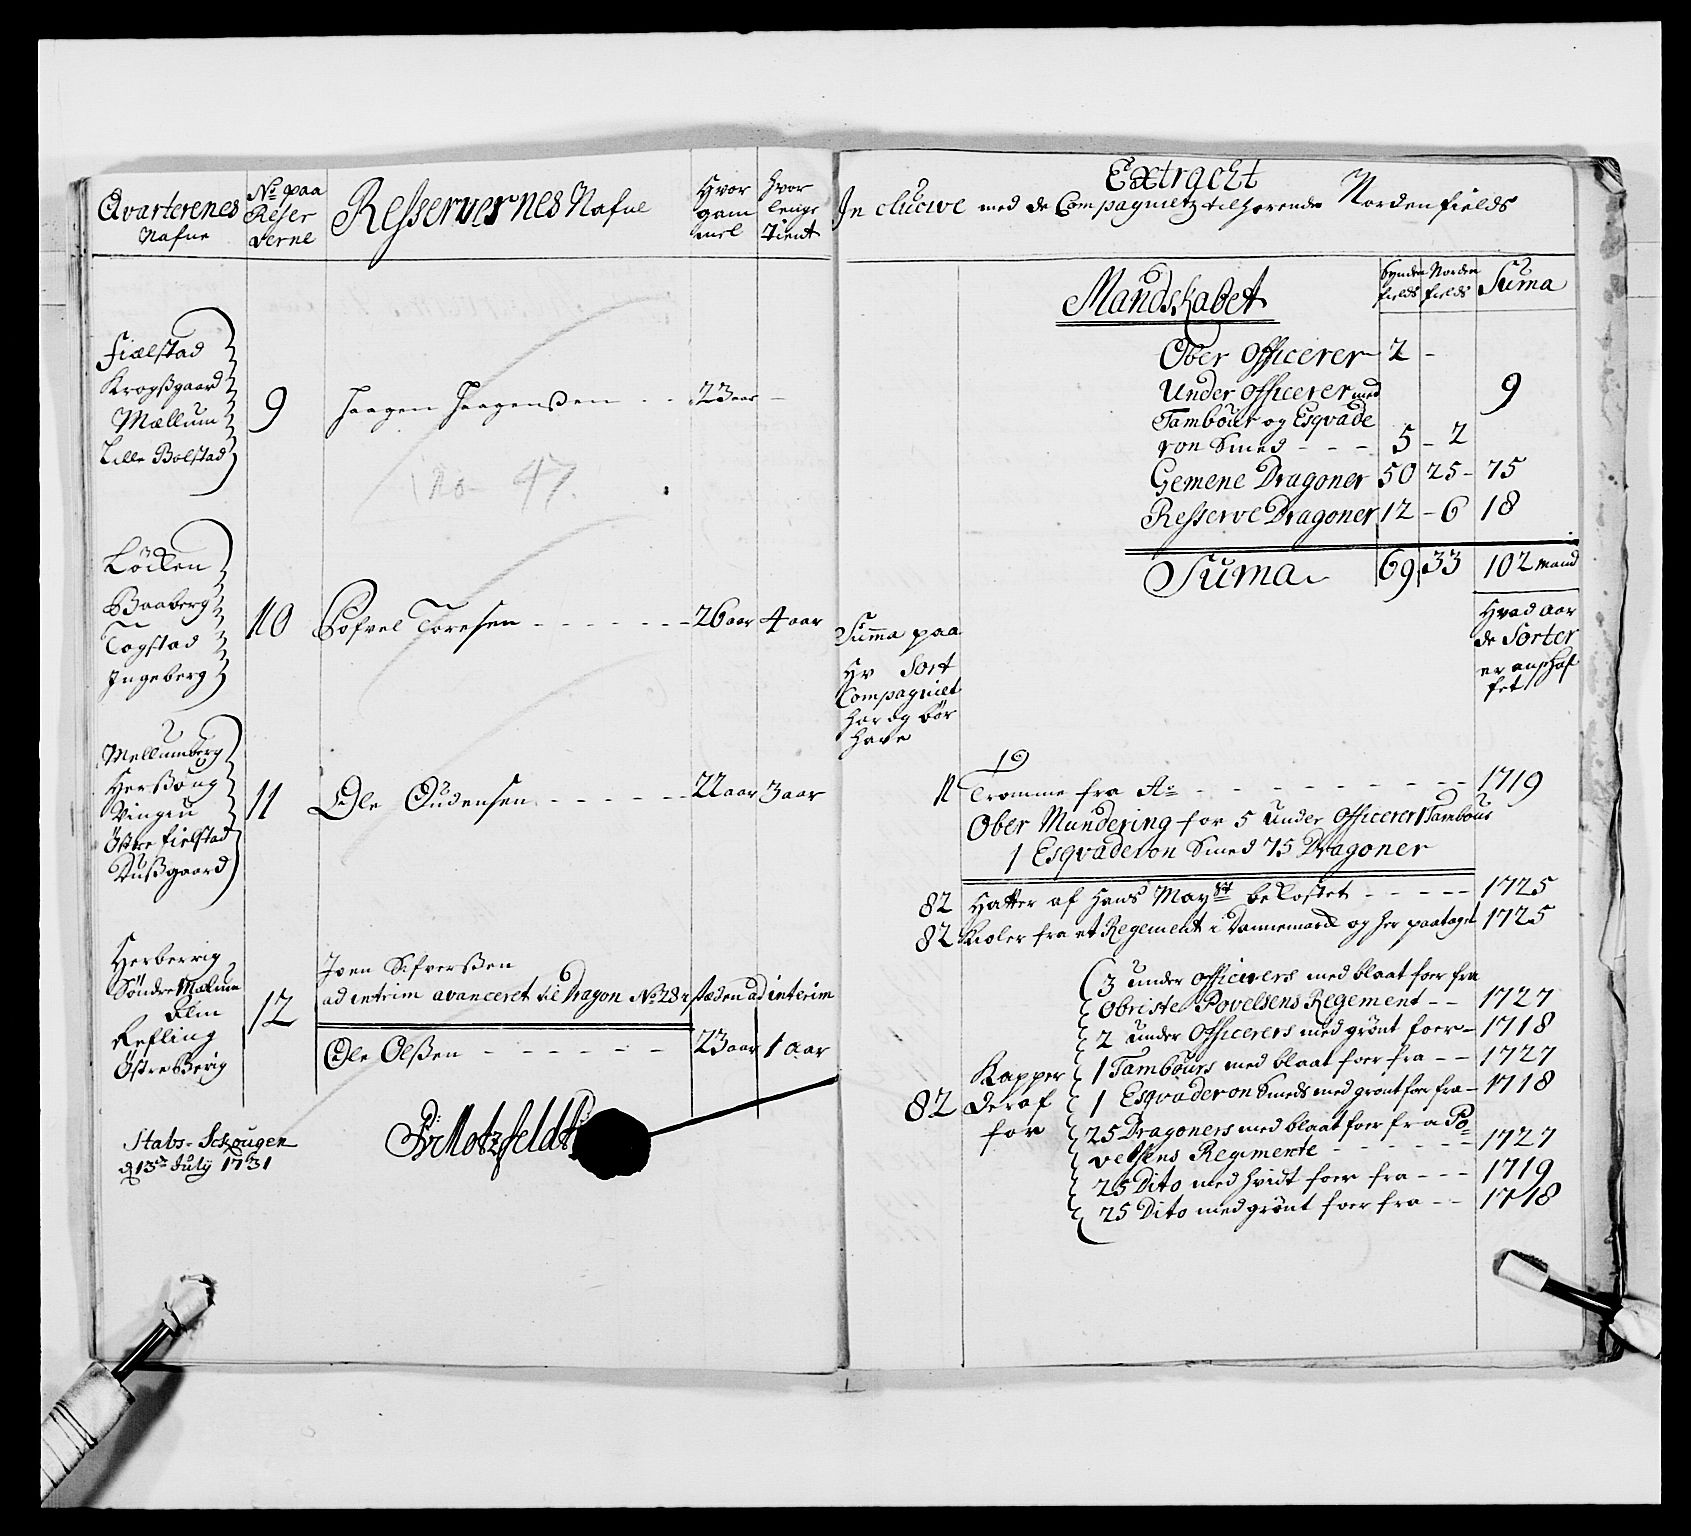 Qvarterenes
Nafne
No paa
Reser
verne
Resservernes Nafne
Hvor
gam
mel
hvor
lenge
Tient
Fielstad
Krogsgaard
Mællum
Lille Bolstad
9
Haagen Haagensen - -
23 aar -
No 47.
Löcken
Baaberg
Togstad
Ingeberg
10
Toresen - - - - - -
26 aar
4 aar
Mellumberg
Hersoug
Vingen
Östre fielstad
Dusgaard
11
Ole Oudensen - - - - -
22 aar
3 aar
Herberrig
Söndre Mælum
Alm
Refling
Östre Berig
12
Joen Sifversen
ad intrim avanceret til Dragon No 28 i stæden ad interim
Ole Olsen - - - - - -
23 aar
1 aar
Stabs-Schougen
d 13de July 1731
Motzfeldt
Extracht
In clucive med de Compagniet tilhørende Nordenfields
Mandskabet
Synden
fields
Norden
fields
Suma
Ober Officerer - 2 -
Under Officerer med
Tambour og Esqvade
ron Smed - - - 5 - 2
9
Gemene Dragoner 50 25 - 75
Resserve Dragoner 12 - 6 18
Suma 69 33 102 mand
Summa paa
Hv Sort
Compagniet
har og bör
have
Hvad aar
de Sorter
er anschaf
fet
19
11 Tromme fra Ao - - - - - - - - 1719
Ober Mundering for 5 under Officerer 1 Tambour
1 Esqvaderon Smed 75 Dragoner
82 Hatter af Hans Mayst bekostet - - - - - 1725
82 Kioler fra et Regement i Dannemarck og her paataget 1725
82
Kapper
Deraf
for
3 under officerers med blaat foer fra
Obriste Povelsens Regement - - 1727
2 under Officerers med grönt foer - 1718
1 Tambours med blaat foer fra - - 1727
1 Esqvaderon Smeds med grönt foer fra - 1718
25 Dragoners med blaat foer fra Po-
velsens Regimente - - - - - - 1727
25 Dito med hvidt foer fra - - - 1719
25 Dito med grönt foer fra - - 1718